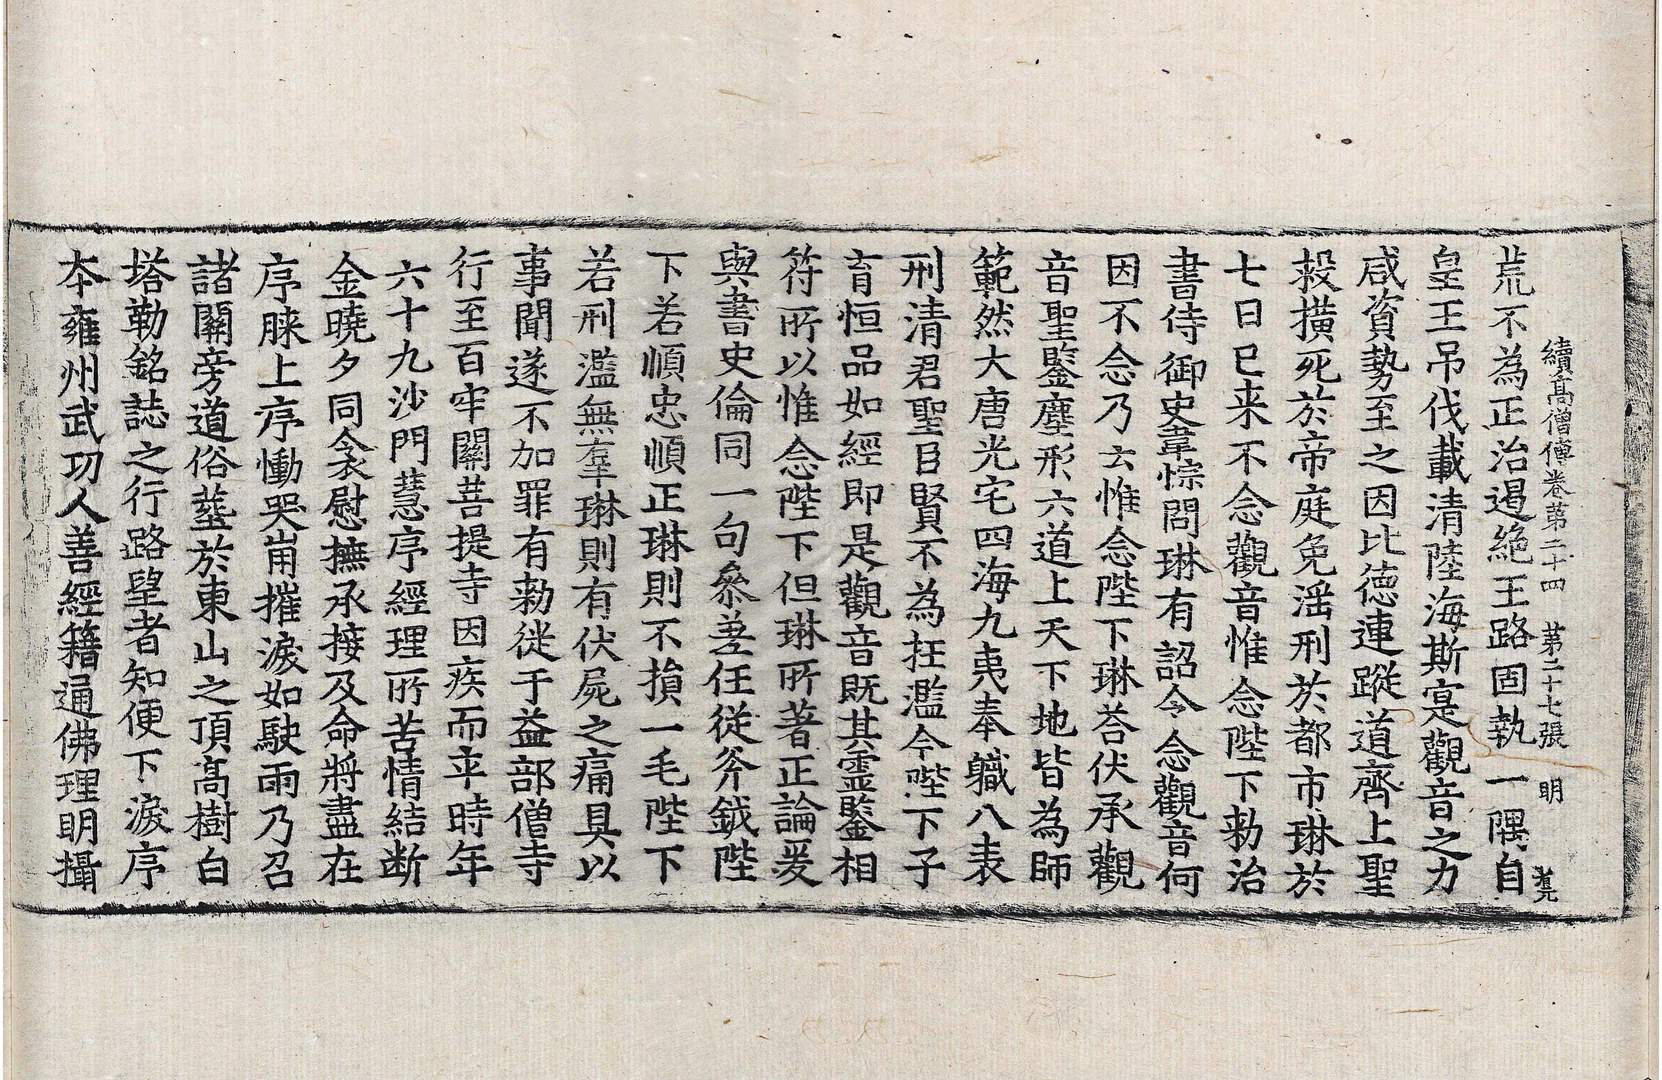 續高僧傳卷第二十四　第二十七張　明
荒不為正治遏絶王路固執一隅自
皇王吊伐載清陸海斯寔觀音之力
咸資勢至之因比德連蹤道齊上聖
投橫死於帝庭免滛刑於都市琳於
七日已来不念觀音惟念陛下勑治
書侍御史韋悰問琳有詔令念觀音何
因不念乃云惟念陛下琳荅伏承觀
音聖鑒塵形六道上天下地皆為師
範然大唐光宅四海九夷奉軄八表
刑清君聖臣賢不為枉濫今陛下子
育恒品如經即是觀音既其靈鑒相
符所以惟念陛下但琳所著正論爰
與書史倫同一句叅差任從斧鉞陛
下若順忠順正琳則不損一毛陛下
若刑濫無辜琳則有伏屍之痛具以
事聞遂不加罪有勑徙于益部僧寺
行至百牢關菩提寺因疾而卒時年
六十九沙門慧序經理所苦情結断
金曉夕同衾慰撫承接及命將盡在
序膝上序慟哭崩摧淚如駛雨乃召
諸關旁道俗葬於東山之頂髙樹白
塔勒銘誌之行路望者知便下淚序
本雍州武功人善經籍通佛理明攝